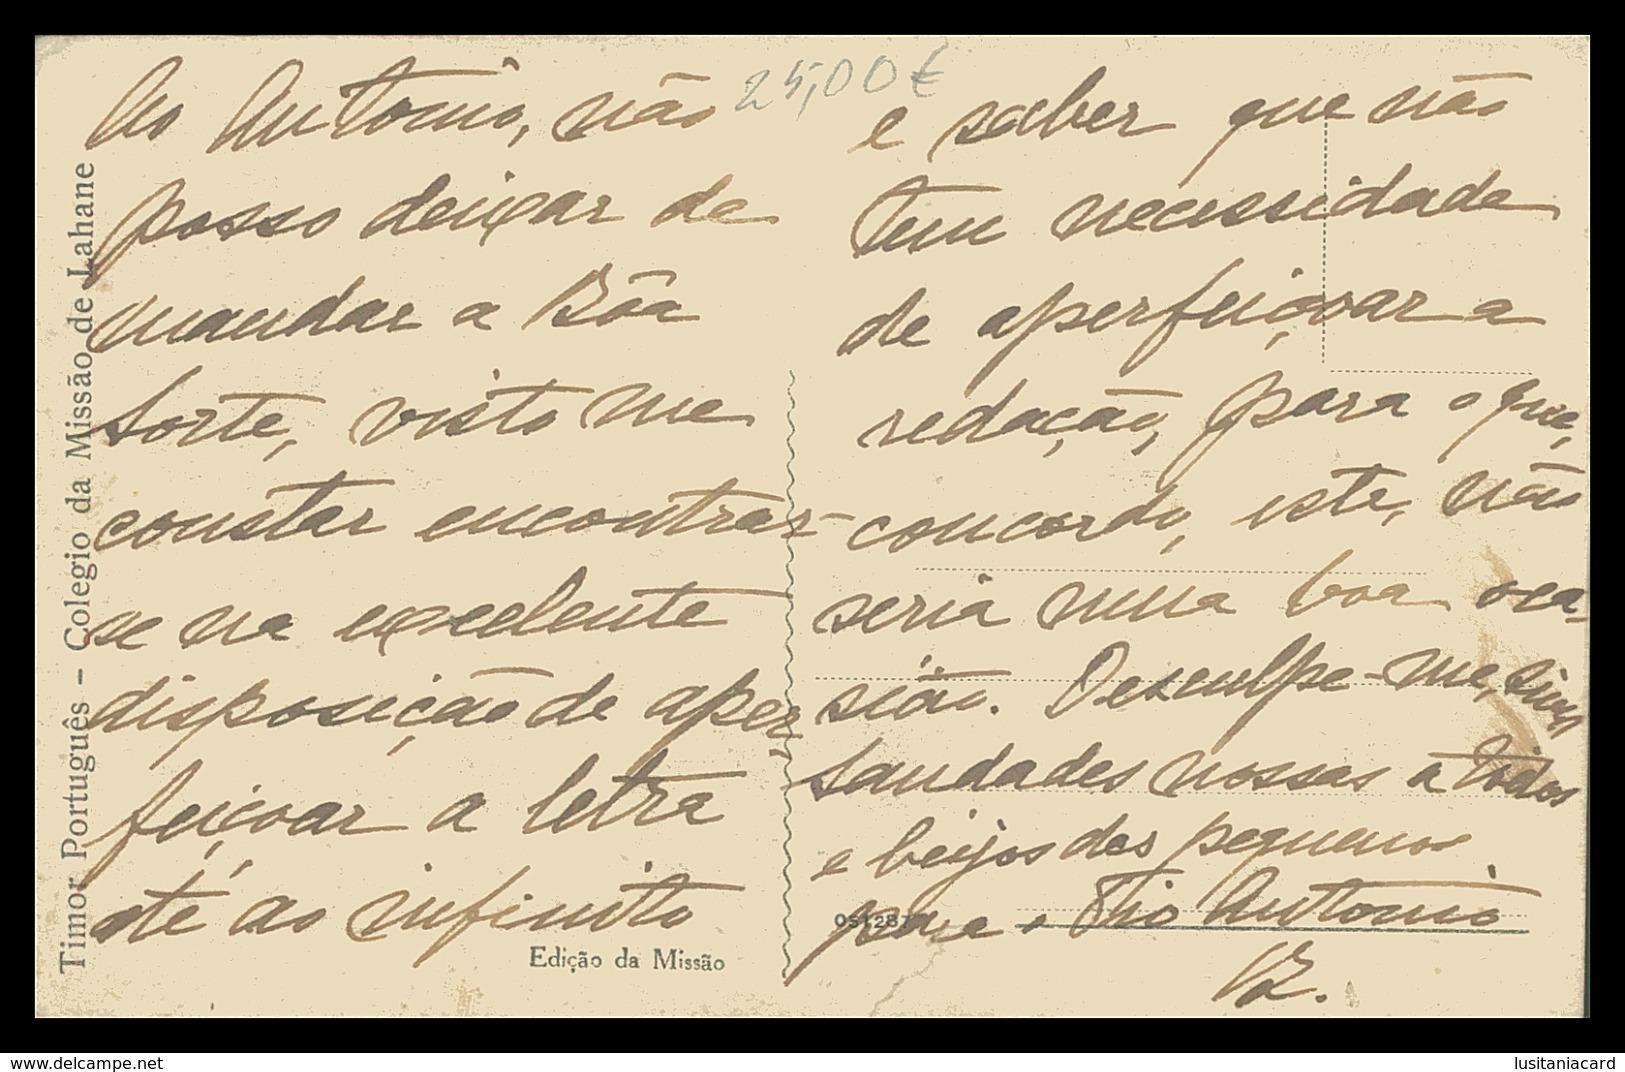 Ao Antonio, não
posso deixar de
mandar a Bôa
Sorte, visto me
constar encontrar-
se na excelente
disposição de aper
feiçoar a letra
até ao infinito
e saber que não
tem necessidade
de aperfeiçoar a
redação, para o que,
concordo, este, não
seria uma boa oca-
sião. Desculpe-me, sim
Saudades nossas a todos
e beijos dos pequenos
para o Tio Antonio
25,00€
Timor Português - Colegio da Missão de Lahane
Edição da Missão
delcampe.net
lusitaniacard